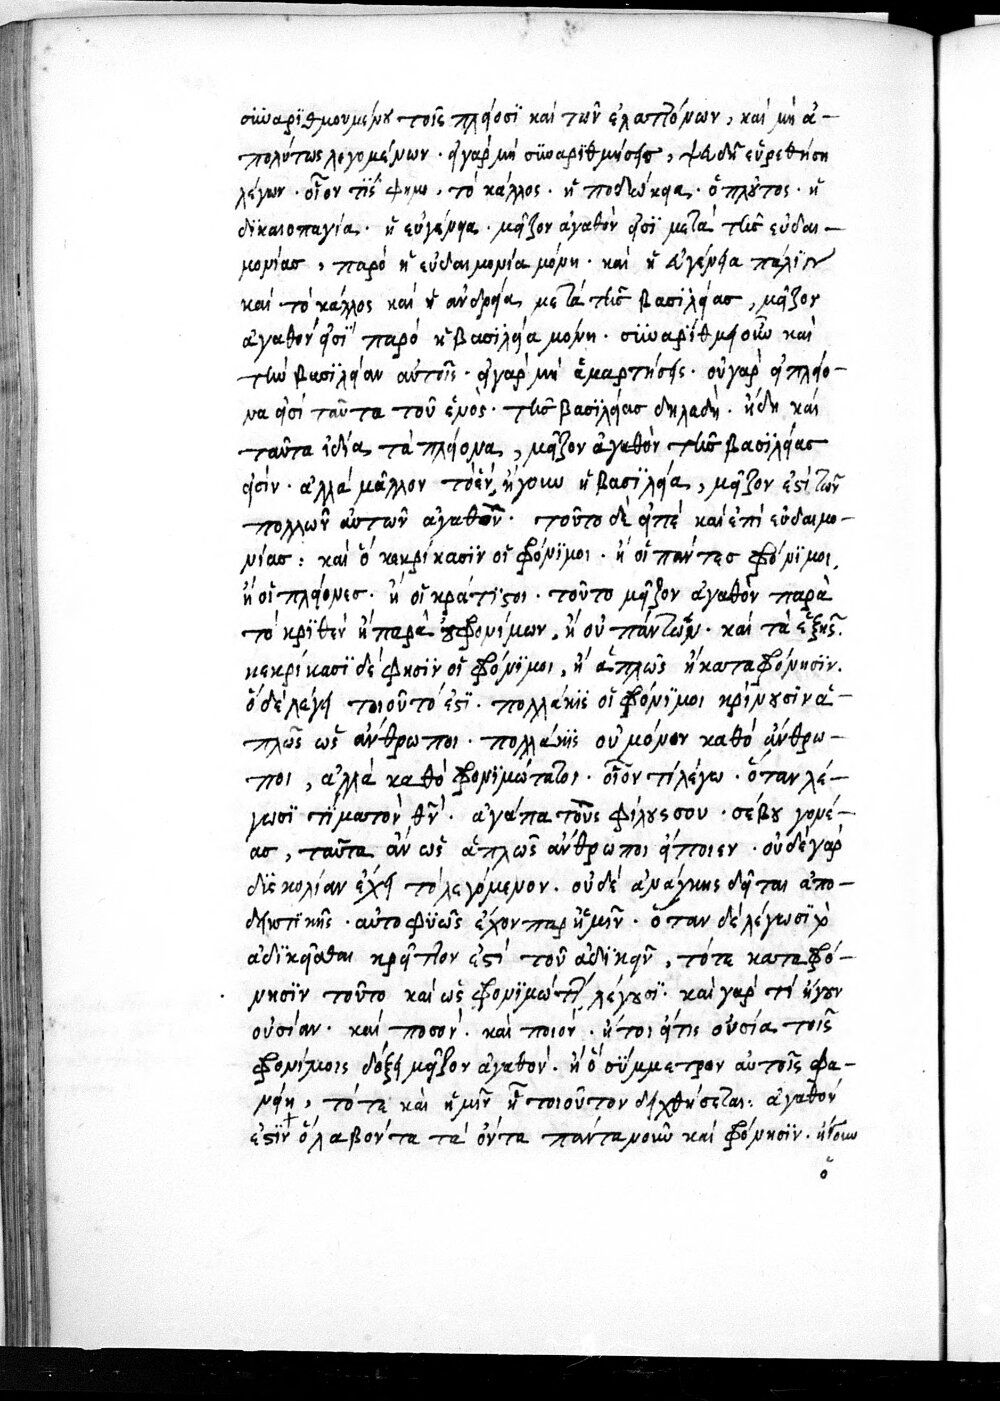 συναριθμουμένου τοῖς πλείοσι καὶ τῶν ἐλαττόνων, καὶ μὴ ἀ-
πολύτως λεγομένων. εἰ γὰρ μὴ συναριθμήσεις, ψευδὴς εὑρεθήση
λέγων. οἷον τίς φημι, τὸ κάλλος. ἡ ποδώκεια. ὁ πλοῦτος. ἡ
δικαιοπαγία. ἡ εὐγένεια. μεῖζον ἀγαθόν εἰσι μετὰ τῆς εὐδαι-
μονίας, παρὸ ἡ εὐδαιμονία μόνη. καὶ ἡ εὐγένεια πάλιν
καὶ τὸ κάλλος καὶ ἡ ἀνδρεία μετὰ τῆς βασιλείας, μεῖζον
ἀγαθόν εἰσι παρὸ ἡ βασιλεία μόνη. συναρίθμει οὖν καὶ
τὴν βασιλείαν αὐτοῖς. εἰ γὰρ μὴ ἁμαρτήσεις. οὐ γὰρ εἰ πλείο-
να εἰσὶ ταῦτα τοῦ ἑνὸς. τῆς βασιλείας δηλαδή. ἤδη καὶ
ταῦτα ἰδία τὰ πλείονα, μεῖζον ἀγαθὸν τῆς βασιλείας
εἰσίν. ἀλλὰ μᾶλλον τὸ ἕν, ἤγουν ἡ βασιλεία, μεῖζον ἐστὶ τῶν
πολλῶν αὐτῶν ἀγαθῶν. τοῦτο δὲ εἰπὲ καὶ ἐπὶ εὐδαιμο-
νίας: καὶ ὃ κεκρίκασιν οἱ φρόνιμοι. ἢ οἱ πάντες φρόνιμοι,
ἢ οἱ πλείονες. ἢ οἱ κράτιστοι. τοῦτο μεῖζον ἀγαθὸν παρὰ
τὸ κριθὲν ἢ παρὰ οὐ φρονίμων, ἢ οὐ πάντων. καὶ τὰ ἑξῆς.
κεκρίκασι δέ φησιν οἱ φρόνιμοι, ἢ ἁπλῶς ἢ κατὰ φρόνησιν.
ὃ δὲ λέγει τοιοῦτό ἐστι. πολλάκις οἱ φρόνιμοι κρίνουσιν ἁ-
πλῶς ὡς ἄνθρωποι. πολλάκις οὐ μόνον καθὸ ἄνθρω-
ποι, ἀλλὰ καθὸ φρονιμώτατοι. οἷον τί λέγω. ὅταν λέ-
γωσι τίμα τὸν θν̄. ἀγάπα τοὺς φίλους σου. σέβου γονέ-
ας, ταῦτα ἂν ὡς ἁπλῶς ἄνθρωποι εἴποιεν. οὐδὲ γὰρ
δυσκολίαν ἔχει τὸ λεγόμενον. οὐδὲ ἀνάγκης δεῖται ἀπο-
δεικτικῆς. αὐτοφυῶς ἔχον παρ' ἡμῖν. ὅταν δὲ λέγωσι τὸ
ἀδικεῖσθαι κρεῖττον ἐστὶ τοῦ ἀδικεῖν, τότε κατὰ φρό-
νησιν τοῦτο καὶ ὡς φρονιμώτατοι λέγουσι. καὶ γὰρ τί ἤγουν
οὐσίαν. καὶ ποσόν. καὶ ποιόν. ἤτοι εἴ τις οὐσία τοῖς
φρονίμοις δόξῃ μεῖζον ἀγαθόν. ἢ ὃ σύμμετρον αὐτοῖς φα-
νείη, τότε καὶ ἡμῖν ἢ τοιοῦτον δειχθήσεται: ἀγαθόν
ἐστιν ὃ λαβόντα τὰ ὄντα πάντα νοῦν καὶ φρόνησιν. ἤγουν
ὃ